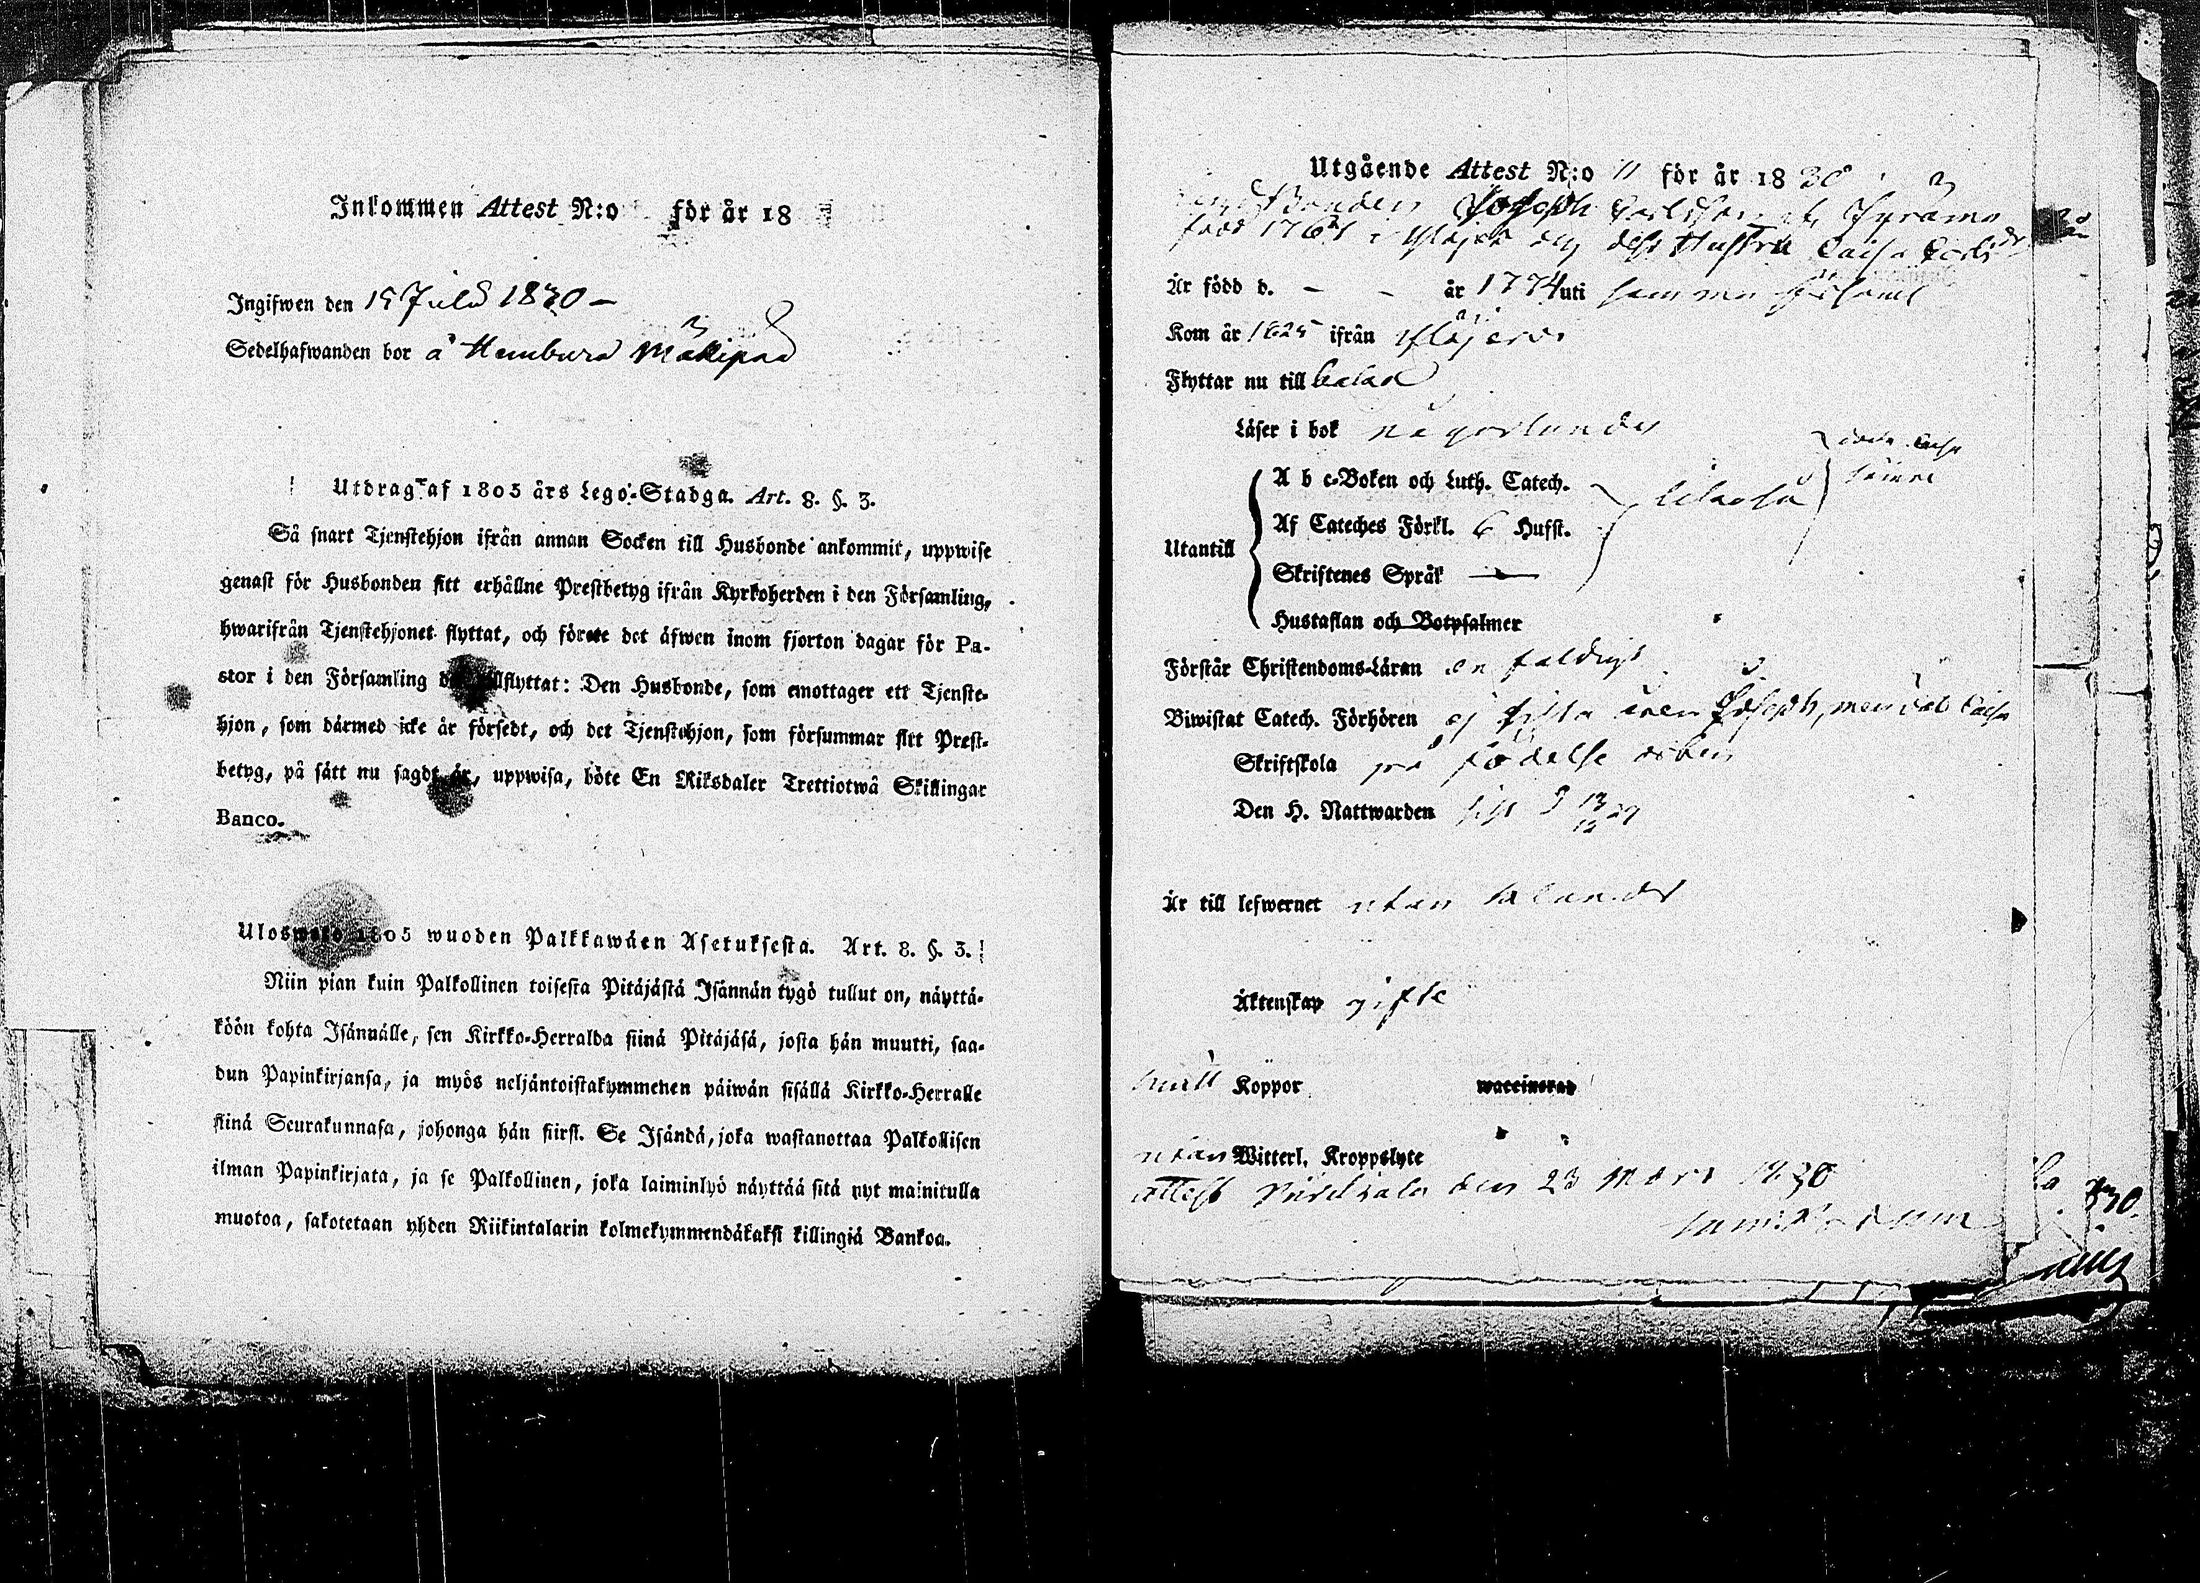 Inkommen Attest N:o för år 18
Ingifwen den 15 Julii 1830 –
Sedelhafwanden bor å Hembura Mäkipää
Utdrag af 1805 års Lego-Stadga. Art. 8. §. 3.
Så snart Tjenstehjon ifrån annan Socken till Husbonde ankommit, uppwise
genast för Husbonden sitt erhållne Prestbetyg ifrån Kyrkoherden i den Församling,
hwarifrån Tjenstehjonet flyttat, och förete det äfwen inom fjorton dagar för Pa-
stor i den Församling dit tillflyttat: Den Husbonde, som emottager ett Tjenste-
hjon, som därmed icke är försedt, och det Tjenstehjon, som försummar sitt Prest-
betyg, på sätt nu sagdt är, uppwisa, böte En Riksdaler Trettiotwå Skillingar
Banco.
Ulosweto 1805 wuoden Palkkawäen Asetuksesta. Art. 8. §. 3.
Niin pian kuin Palkollinen toisesta Pitäjästä Isännän tygö tullut on, näyttä-
köön kohta Isännälle, sen Kirkko-Herralda siinä Pitäjäsä, josta hän muutti, saa-
dun Papinkirjansa, ja myös neljäntoistakymmenen päiwän sisällä Kirkko-Herralle
siinä Seurakunnasa, johonga hän siirsi. Se Isändä, joka wastanottaa Palkollisen
ilman Papinkirjata, ja se Palkollinen, joka laiminlyö näyttää sitä nyt mainitulla
muotoa, sakotetaan yhden Riikintalarin kolmekymmendäkaksi killingiä Bankoa.
Utgående Attest N:o 11 för år 1830
Bonden Joseph Carlsson
född i och dess Hustru Caisa
Är född d. – – år 1774 uti samma
Kom år 1825 ifrån
Flyttar nu till
Läser i bok någorlunda
Utantill
A b c-Boken och Luth. Catech.
Af Cateches Förkl. 6 Hufst.
likaså
Caisa
Skriftenes Språk —
Hustaflan och Botpsalmer
Förstår Christendoms-Läran enfaldigt
Biwistat Catech. Förhören ej sista åren Joseph, men väl Caisa
Skriftskola på födelse orten
Den H. Nattwarden sist d 13/12 29
Är till lefwernet utan
Äktenskap gifte
haft Koppor waccinerad
utan Witterl. Kroppslyte
Attest den 23 Mars 1830